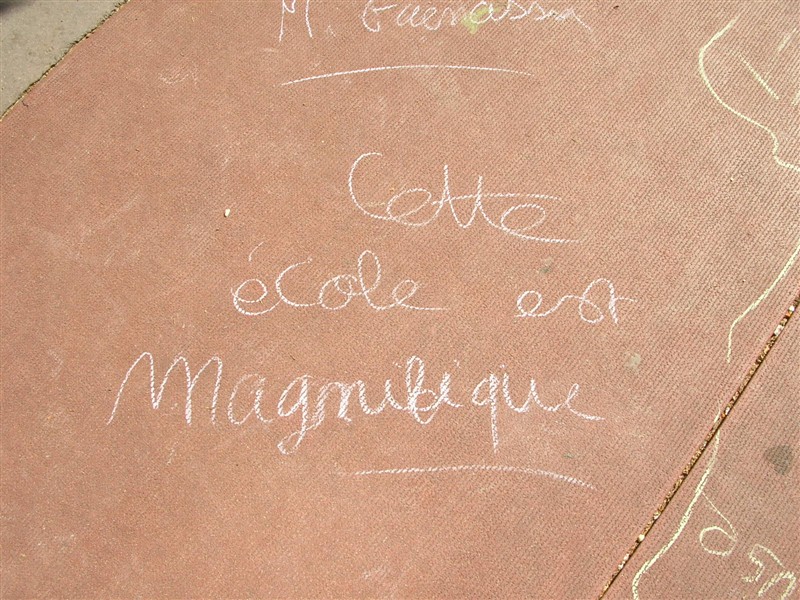 M. Guenassia
Cette
école est
Magnifique